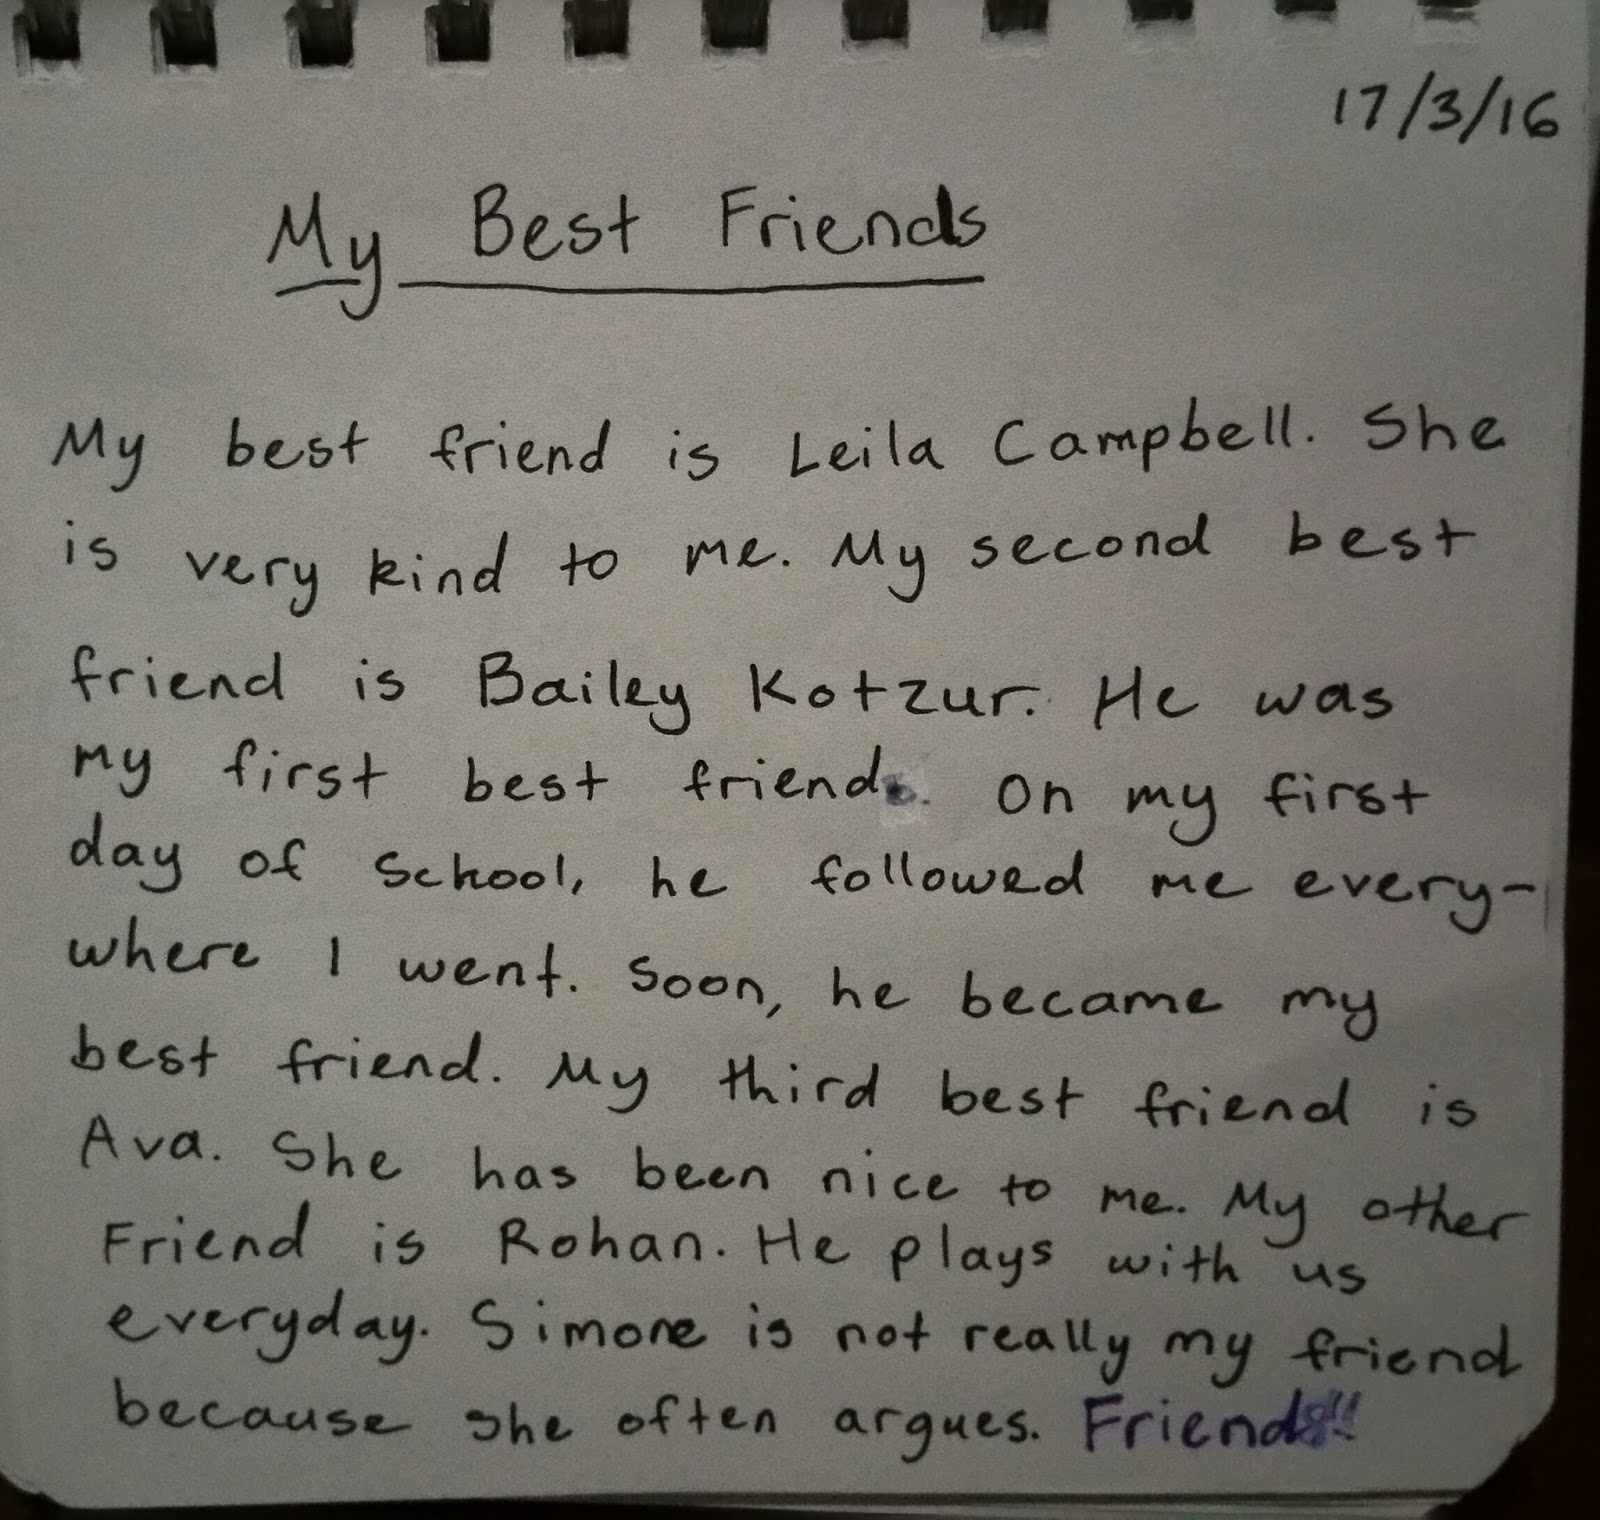 17/3/16
My Best Friends
My best friend is Leila Campbell. She
is very kind to me. My second best
friend is Bailey Kotzur. He was
my first best friend. On my first
day of School, he followed me every-
where I went. Soon, he became my
best friend. My third best friend is
Ava. She has been nice to me. My other
Friend is Rohan. He plays with us
everyday. Simone is not really my friend
because she often argues. Friends!!